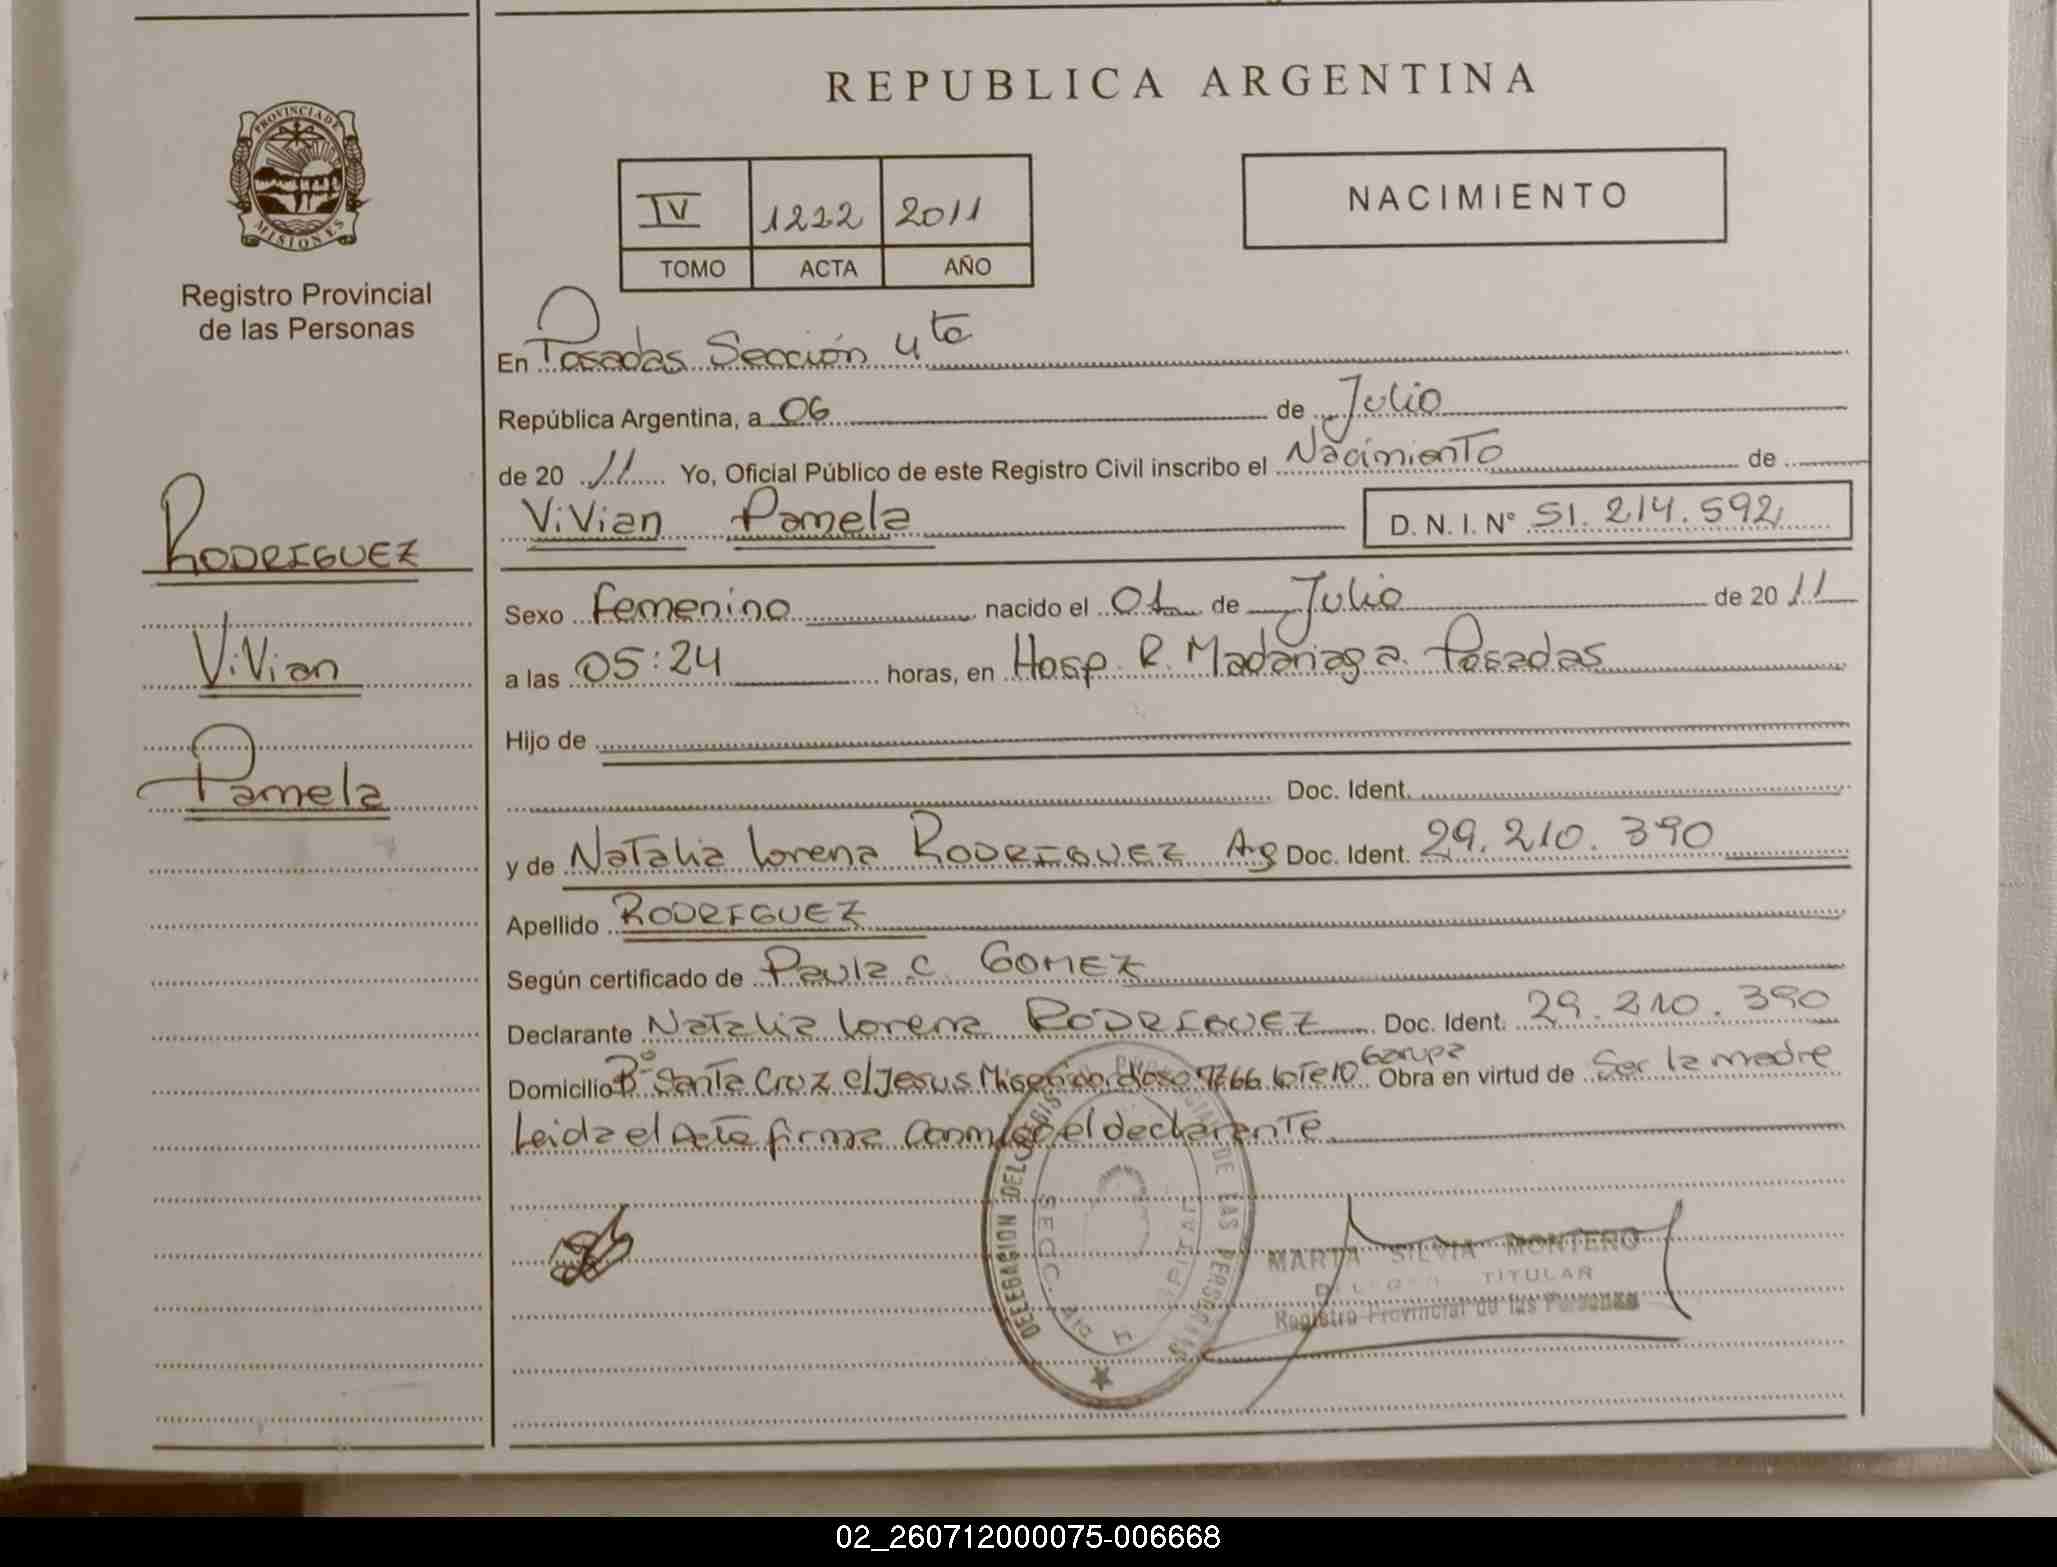 REPUBLICA ARGENTINA
PROVINCIA DE
MISIONES
Registro Provincial
de las Personas
IV 1222 2011
TOMO ACTA AÑO
NACIMIENTO
RODRIGUEZ
ViVian
Pamela
En Posadas Sección 4ta
República Argentina, a 06 de Julio
de 20 11 Yo, Oficial Público de este Registro Civil inscribo el Nacimiento de
ViVian Pamela D. N. I. Nº 51.214.592
Sexo femenino nacido el 01 de Julio de 20 11
a las 05:24 horas, en Hosp. R. Madariaga. Posadas
Hijo de
Doc. Ident.
y de Natalia lorena RODRIGUEZ Ag Doc. Ident. 29.210.390
Apellido RODRIGUEZ
Según certificado de Paula C. GOMEZ
Declarante Natalia lorena RODRIGUEZ Doc. Ident. 29.210.390
Domicilio Bº Santa Cruz c/Jesus Misericordioso 7766 lote 10 Garupa Obra en virtud de Ser la madre
Leida el Acta firma conmigo el declarante
DELEGACION DEL REGISTRO PROVINCIAL DE LAS PERSONAS
SECC.
MARTA SILVIA MONTERO
TITULAR
Registro Provincial de las Personas
02_260712000075-006668